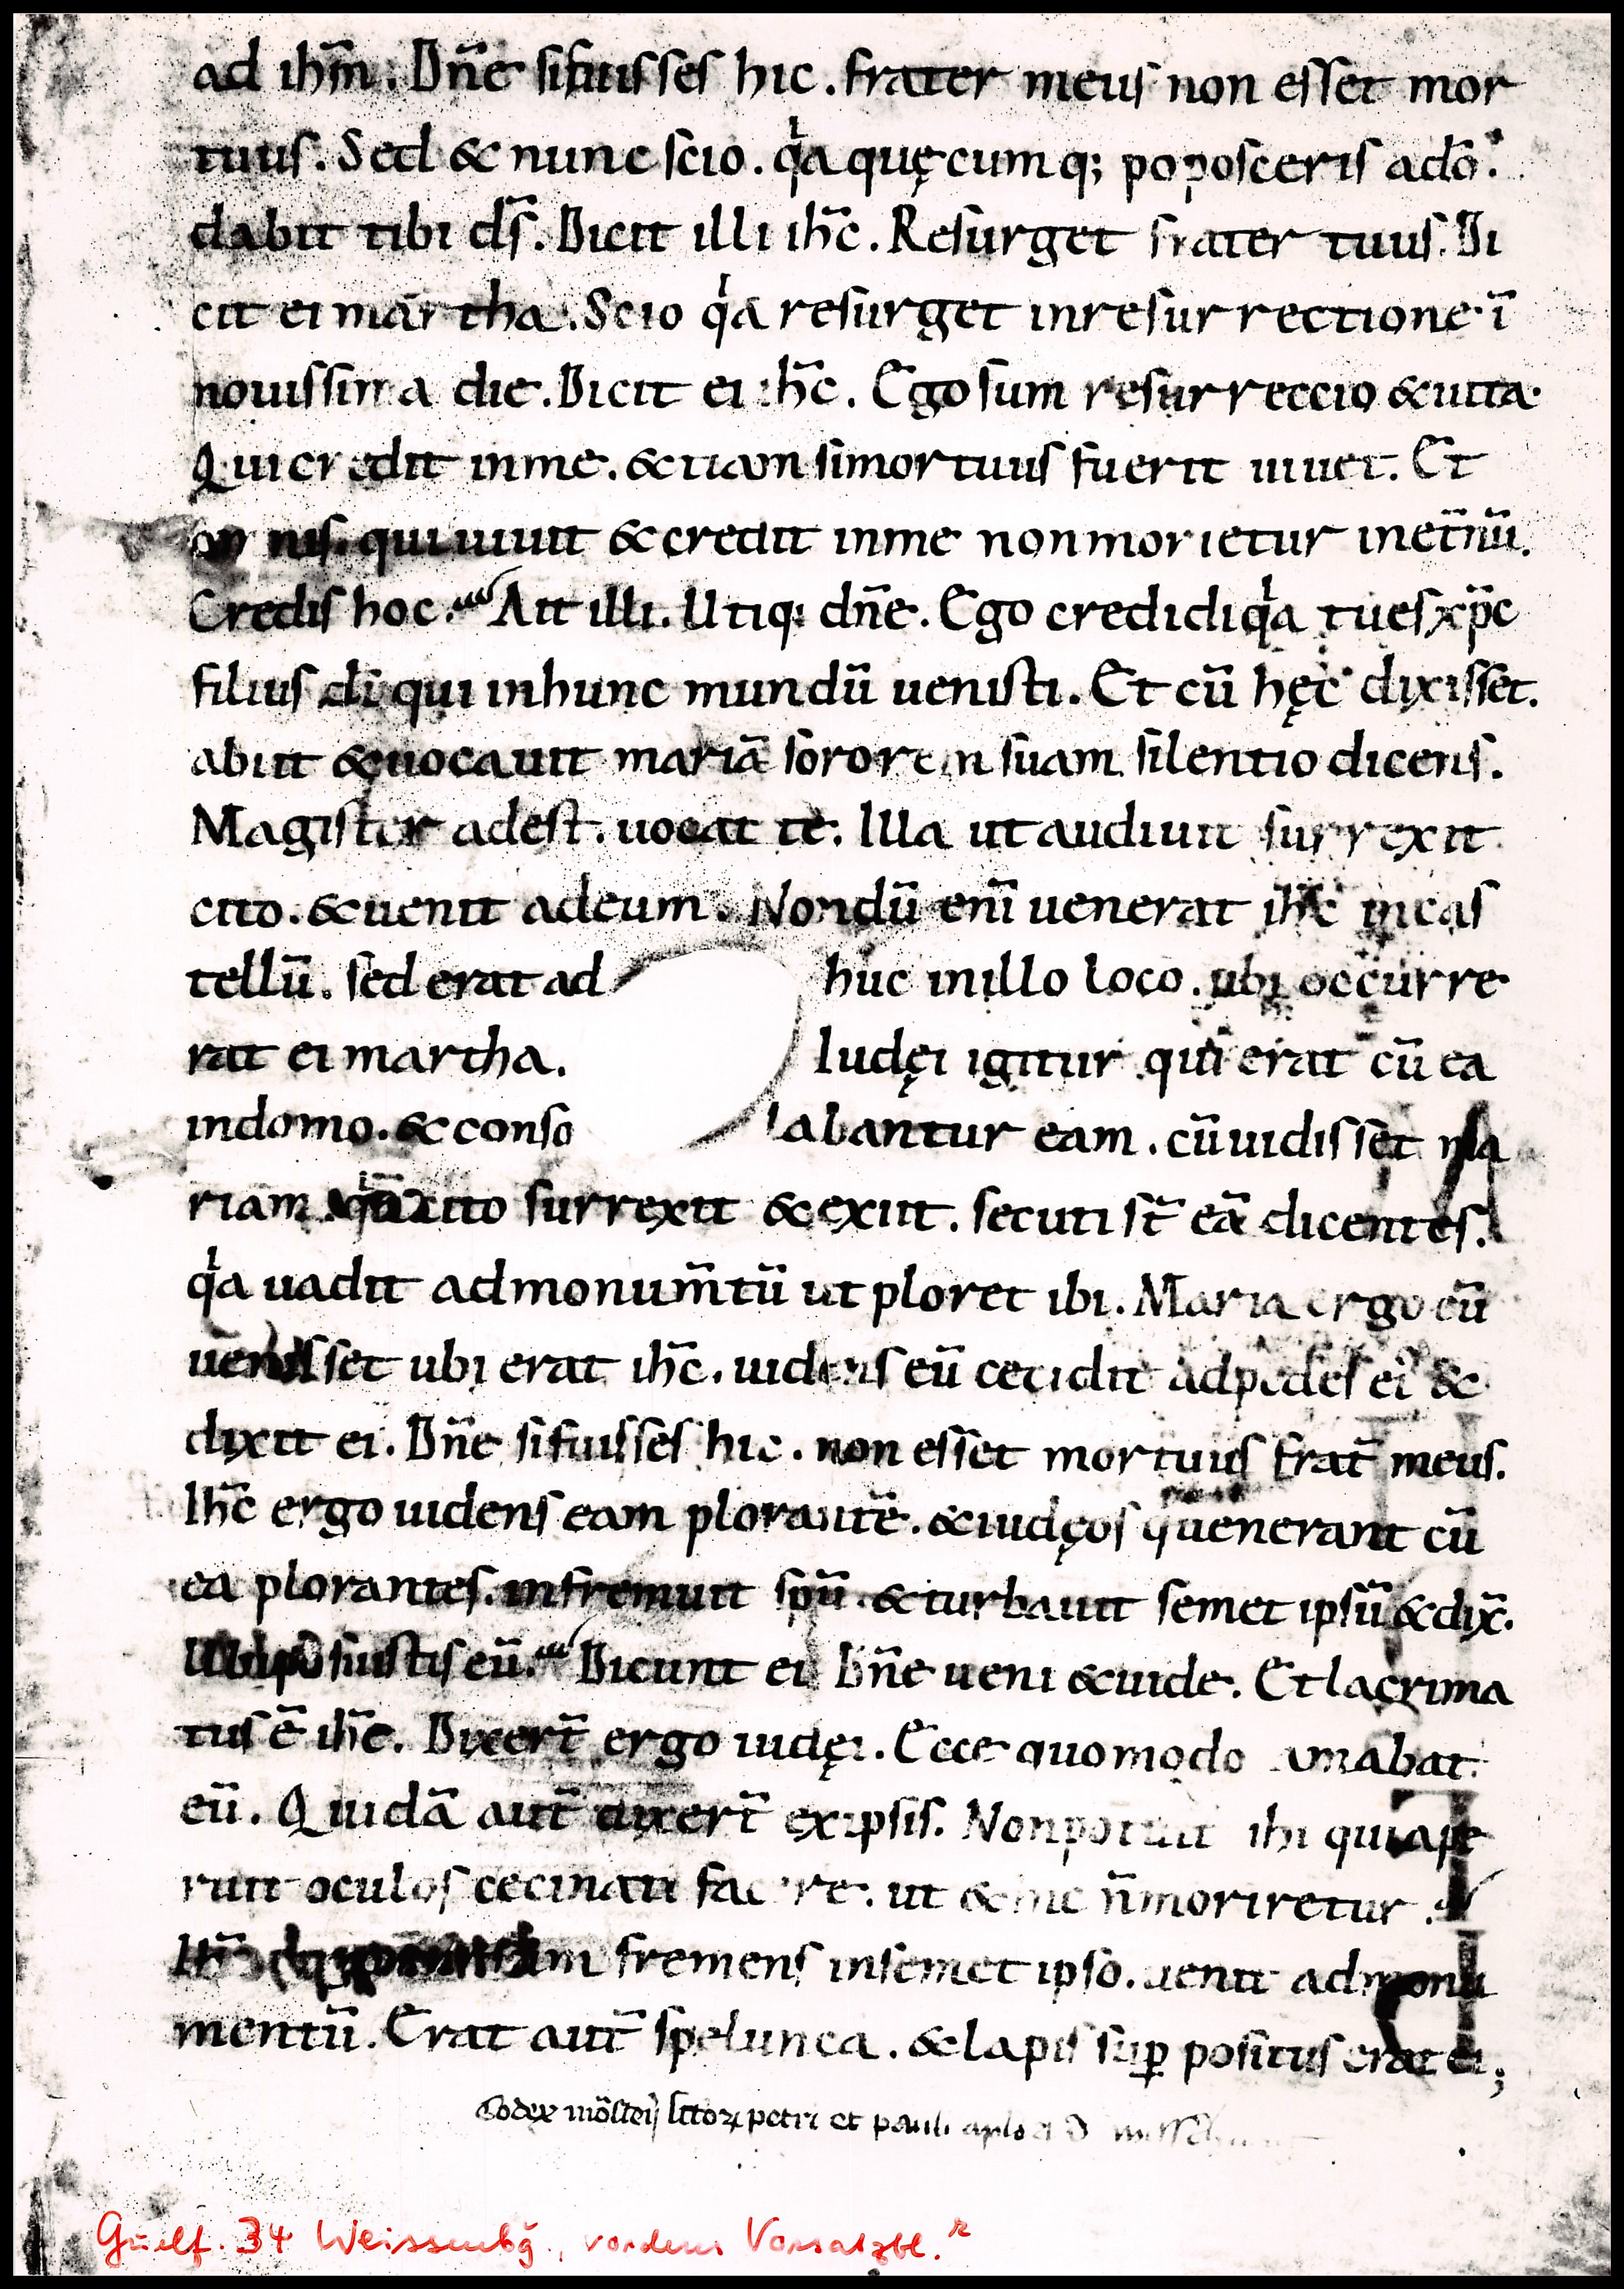 ad ihm̄. Dn̄e si fuisses hic. frater meus non esset mor
tuus. Sed & nunc scio. qͥa quęcumq; poposceris a dō.
dabit tibi ds̄. Dicit illi ihc̄. Resurget frater tuus. Di
cit ei martha. Scio qͥa resurget in resurrectione ī
nouissima die. Dicit ei ihc̄. Ego sum resurreccio & uita.
Qui credit in me. &iam si mortuus fuerit uiuet. Et
omnis. qui uiuit & credit in me non morietur in et̄nū.
Credis hoc. Ait illi. Utiq; dn̄e. Ego credidi qͥa tu es xp̄c
filius dī qui in hunc mundū uenisti. Et cū hęc dixisset.
abiit & uocauit mariā sororem suam silentio dicens.
Magister adest. uocat te. Illa ut audiuit surrexit
cito. & uenit ad eum. Nondū enī uenerat ihc̄ in cas
tellū. sed erat ad huc in illo loco. ubi occurre
rat ei martha. Iudęi igitur qui erat cū ea
in domo. & conso labantur eam. cū uidisset ma
riam cito surrexit & exiit. secuti st̄ eā dicentes.
qͥa uadit ad monum̄tū ut ploret ibi. Maria ergo cū
uenisset ubi erat ihc̄. uidens eū cecidit ad pedes ei &
dixit ei. Dn̄e si fuisses hic. non esset mortuus frat̄ meus.
Ihc̄ ergo uidens eam plorantē. & iudęos q uenerant cū
ea plorantes. infremuit spū & turbauit semet ipsū & dix̄.
Ubi posuistis eū. Dicunt ei Dn̄e ueni & uide. Et lacrima
tus ē ihc̄. Dixer̄t ergo iudęi. Ecce quomodo amabat
eū. Quidā aut̄ dixer̄t ex ipsis. Non potuit ihi qui ape
ruit oculos ceci nati facere. ut & hic n̄ moriretur.
fremens in semet ipso. uenit ad monu
mentū. Erat aut̄ spelunca. & lapis suꝑ positus erat ei;
Codex mōsterij sctoꝝ petri et pauli aplo
Guelf. 34 Weissenbg., vorderes Vorsatzbl.ʳ